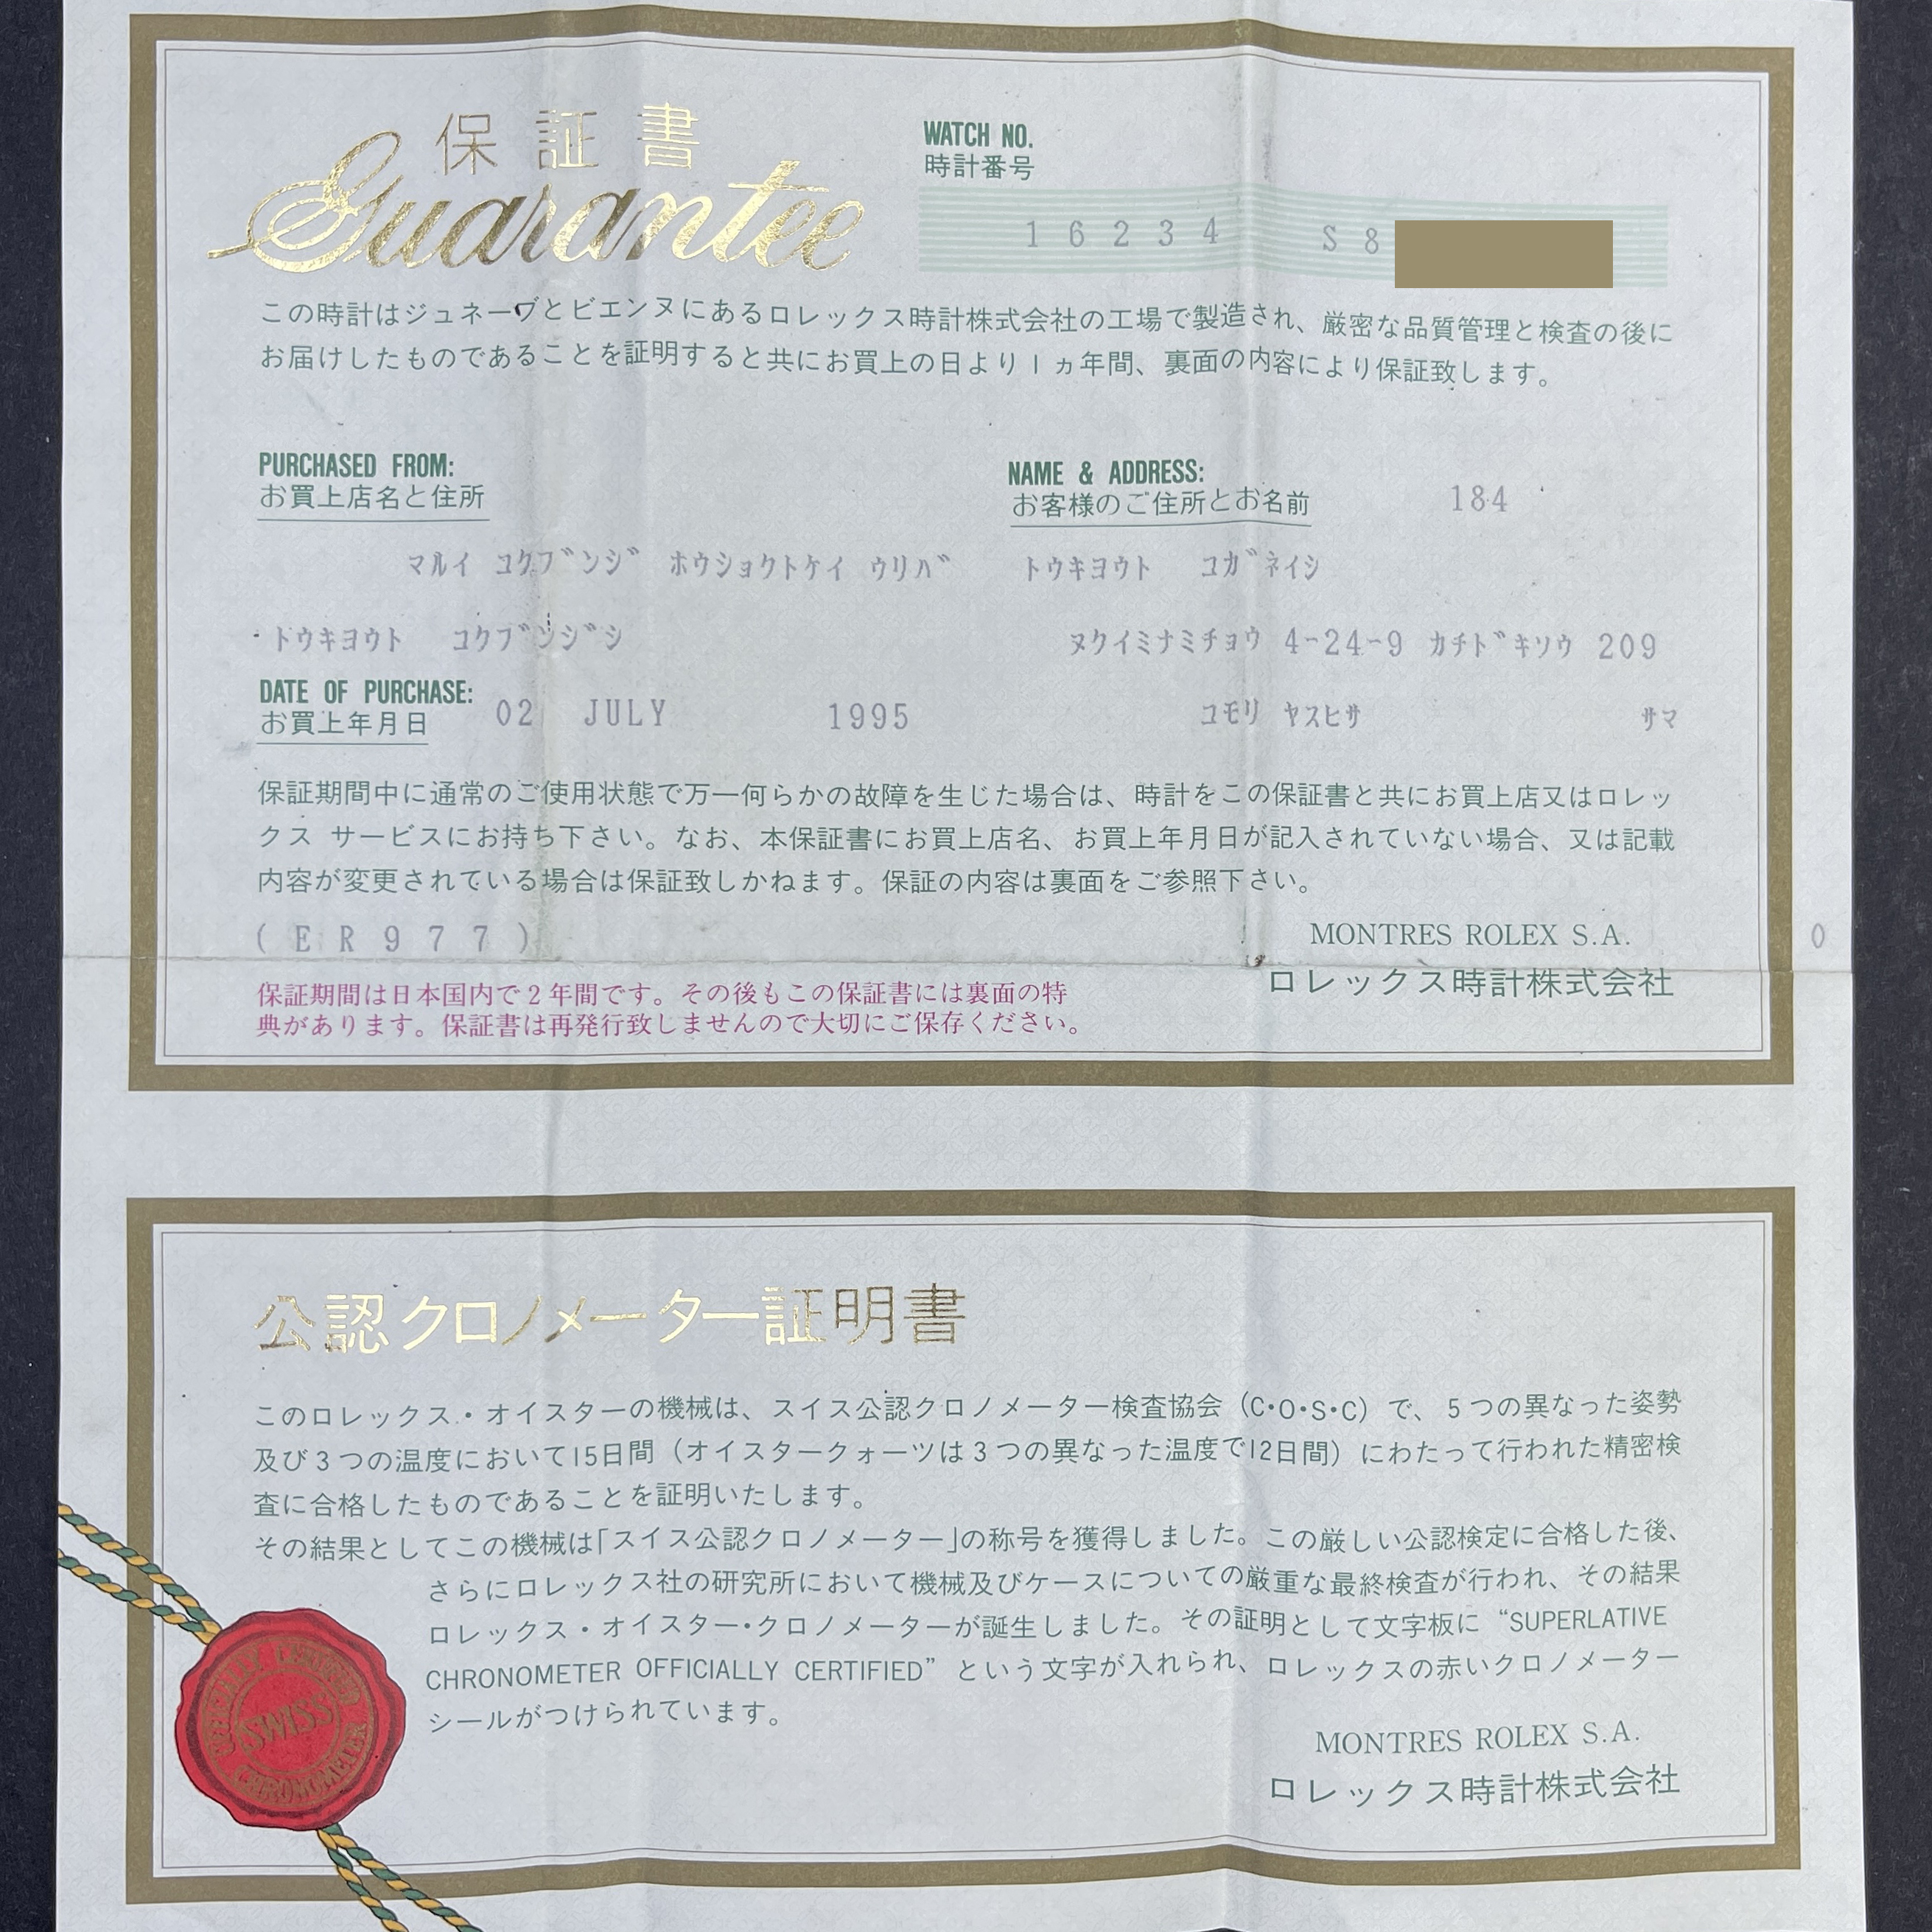 保証書
Guarantee
WATCH NO.
時計番号
16234 S8
この時計はジュネーヴとビエンヌにあるロレックス時計株式会社の工場で製造され、厳密な品質管理と検査の後に
お届けしたものであることを証明すると共にお買上の日より1ヵ年間、裏面の内容により保証致します。
PURCHASED FROM:
お買上店名と住所
NAME & ADDRESS:
お客様のご住所とお名前
184
マルイ コクブンジ ホウショクトケイ ウリバ
トウキヨウト コガネイシ
トウキヨウト コクブンジシ
ヌクイミナミチョウ 4-24-9 カチドキソウ 209
DATE OF PURCHASE:
お買上年月日
02 JULY 1995
コモリ ヤスヒサ サマ
保証期間中に通常のご使用状態で万一何らかの故障を生じた場合は、時計をこの保証書と共にお買上店又はロレッ
クス サービスにお持ち下さい。なお、本保証書にお買上店名、お買上年月日が記入されていない場合、又は記載
内容が変更されている場合は保証致しかねます。保証の内容は裏面をご参照下さい。
(ER977)
MONTRES ROLEX S.A.
0
ロレックス時計株式会社
保証期間は日本国内で2年間です。その後もこの保証書には裏面の特
典があります。保証書は再発行致しませんので大切にご保存ください。
公認クロノメーター証明書
このロレックス・オイスターの機械は、スイス公認クロノメーター検査協会(C・O・S・C)で、5つの異なった姿勢
及び3つの温度において15日間(オイスタークォーツは3つの異なった温度で12日間)にわたって行われた精密検
査に合格したものであることを証明いたします。
その結果としてこの機械は「スイス公認クロノメーター」の称号を獲得しました。この厳しい公認検定に合格した後、
さらにロレックス社の研究所において機械及びケースについての厳重な最終検査が行われ、その結果
ロレックス・オイスター・クロノメーターが誕生しました。その証明として文字板に “SUPERLATIVE
CHRONOMETER OFFICIALLY CERTIFIED” という文字が入れられ、ロレックスの赤いクロノメーター
シールがつけられています。
OFFICIALLY CERTIFIED
SWISS
CHRONOMETER
MONTRES ROLEX S.A.
ロレックス時計株式会社